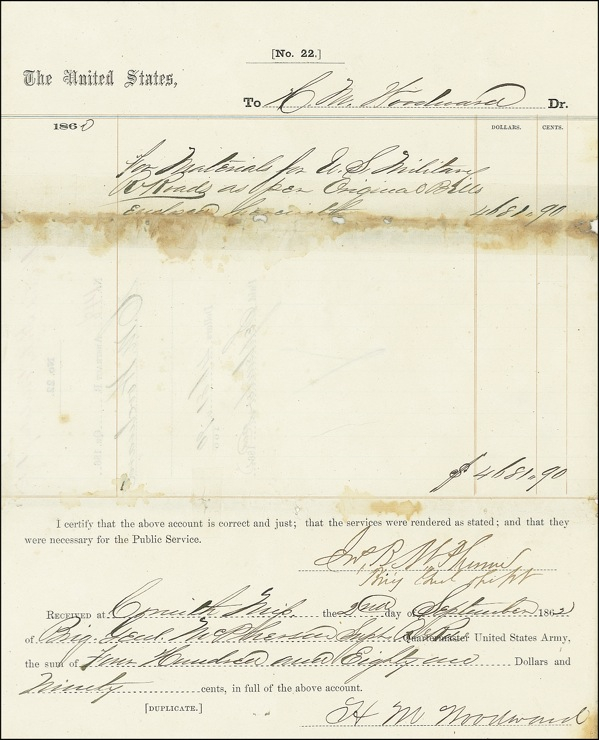 [No. 22.]
The United States,
To H. M. Woodward Dr.
186
DOLLARS. CENTS.
For Materials for U. S. Military
R Roads as per Original Bills
4681.90
$ 4681.90
I certify that the above account is correct and just; that the services were rendered as stated; and that they
were necessary for the Public Service.
Brig Genl Supt
RECEIVED at Corinth Miss. the 2nd day of September 1862
of Brig. Genl McPherson Supt. R. R. Quartermaster United States Army,
the sum of Four Hundred and Eighty one Dollars and
Ninety cents, in full of the above account.
[DUPLICATE.]
H M Woodward